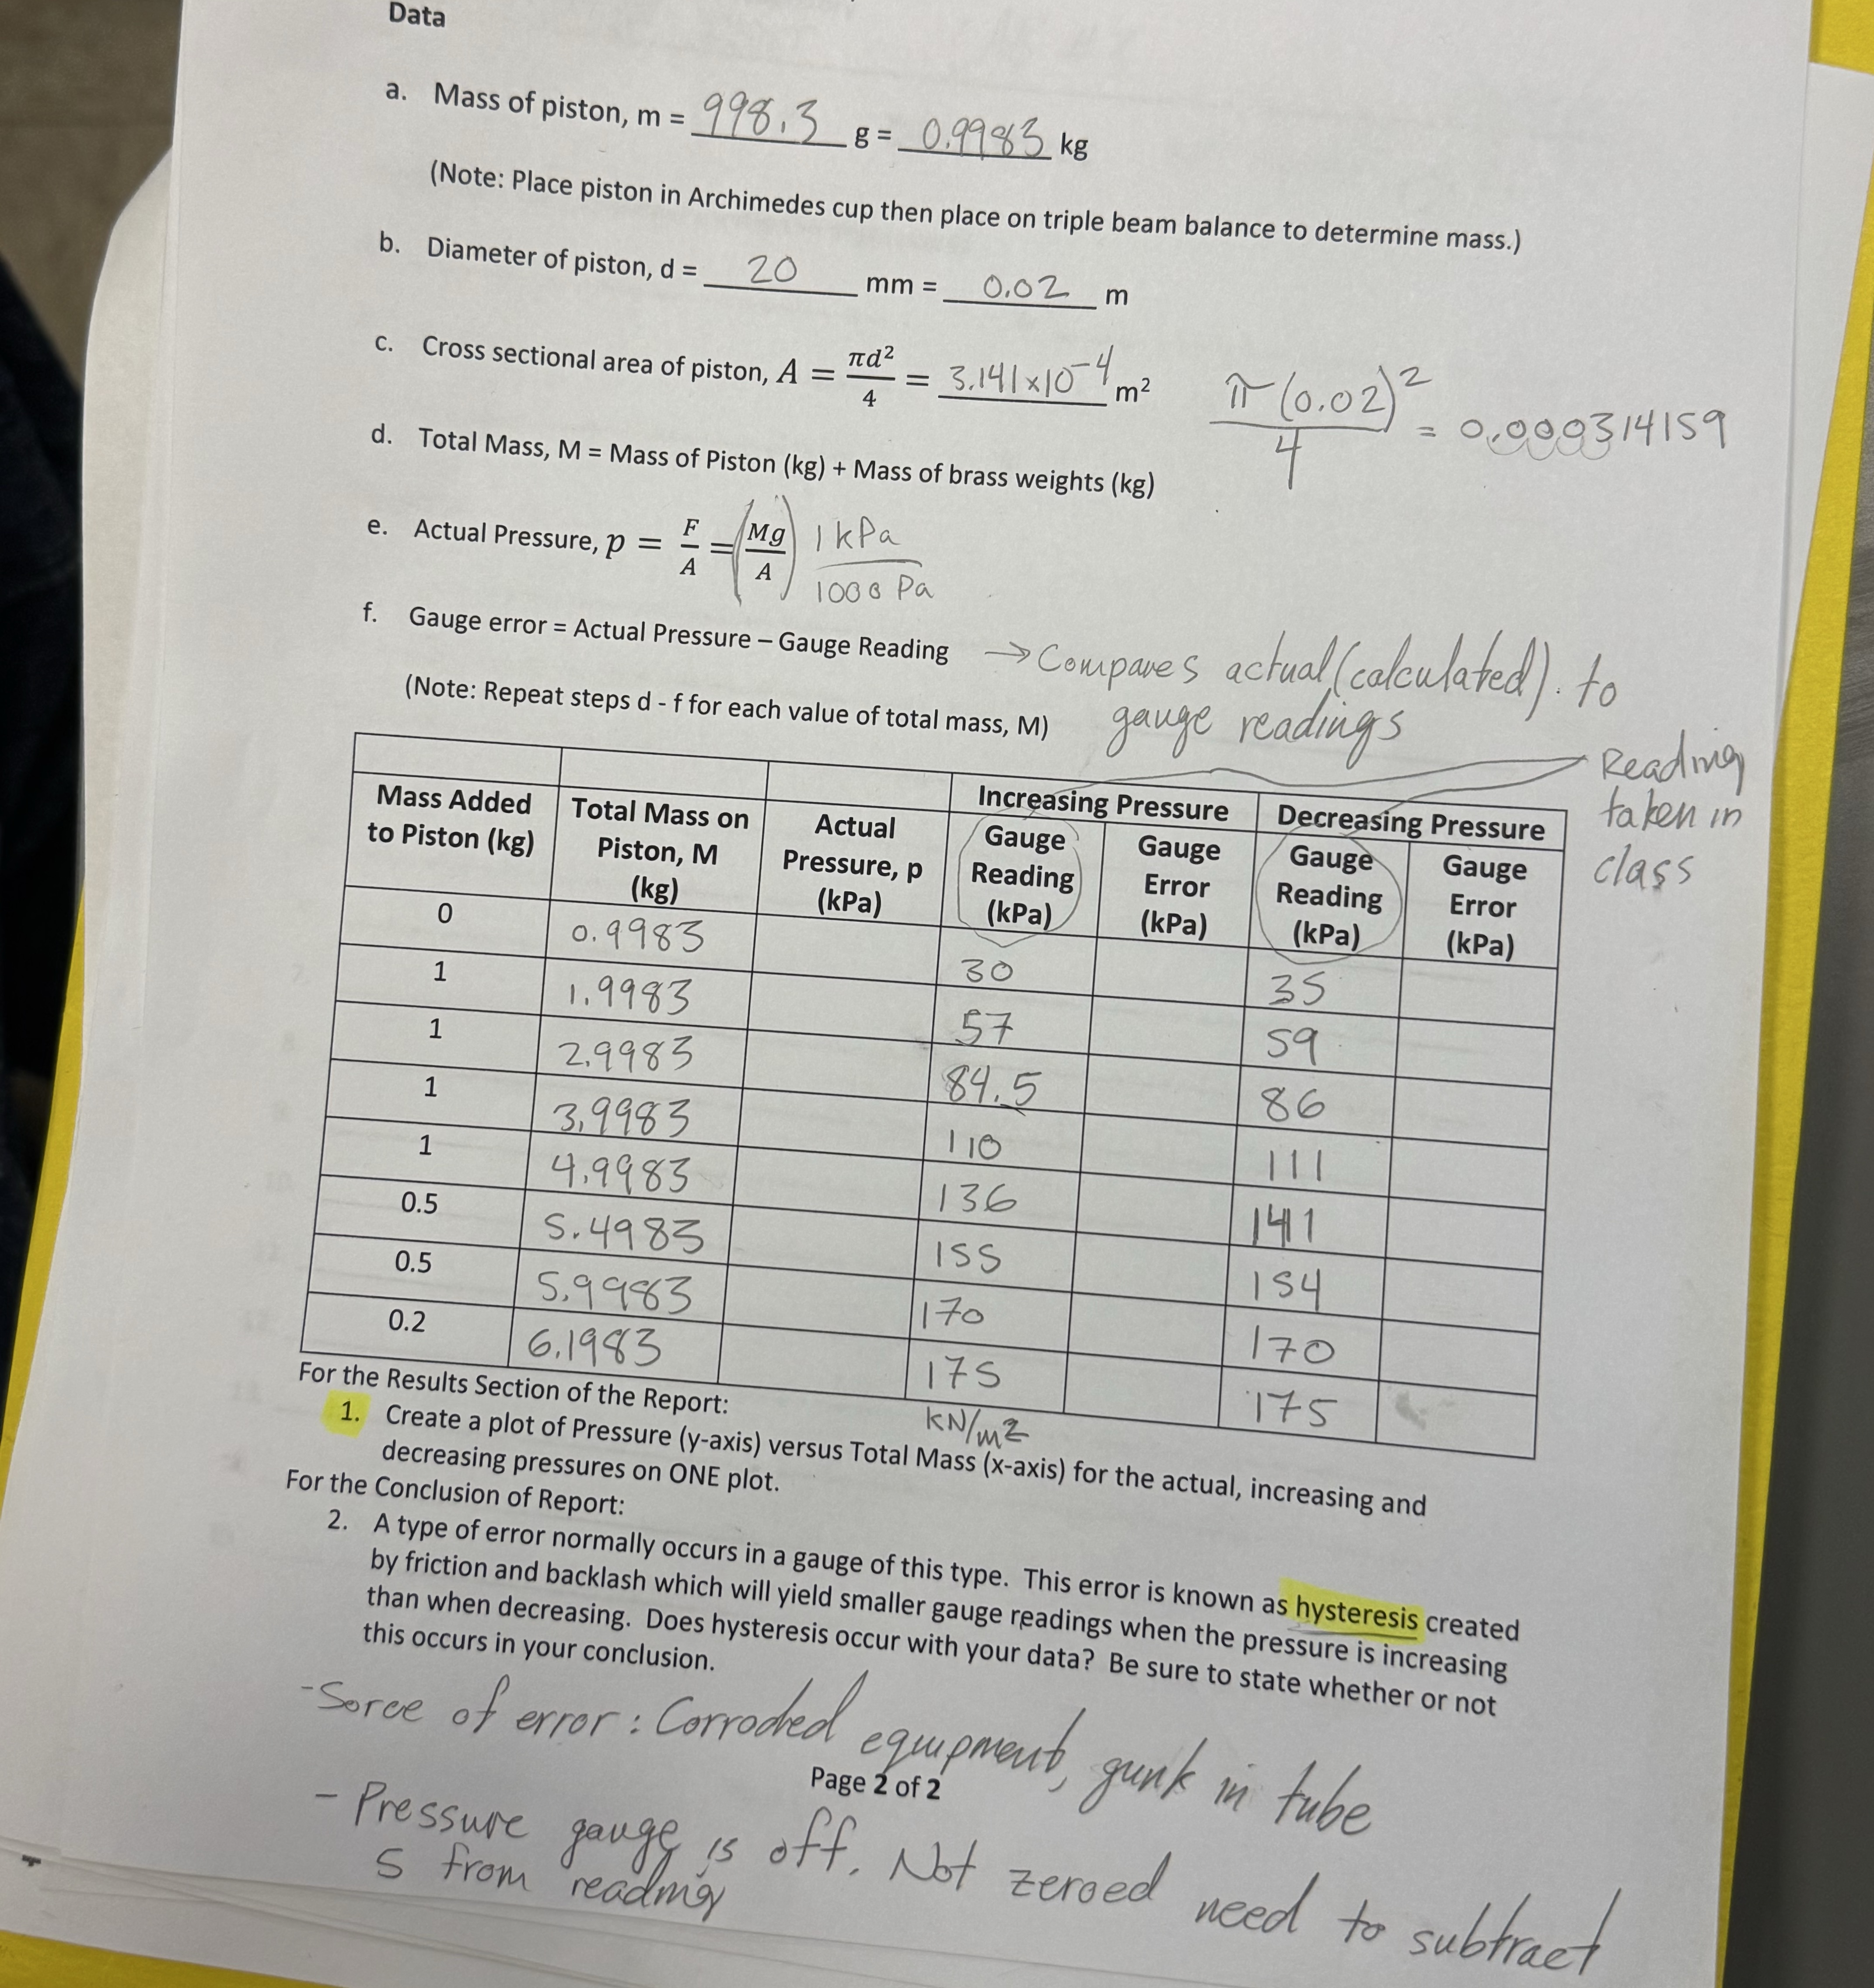 Data
a. Mass of piston, m = 998.3 g = 0.9983 kg
(Note: Place piston in Archimedes cup then place on triple beam balance to determine mass.)
b. Diameter of piston, d = 20 mm = 0.02 m
c. Cross sectional area of piston, A = πd²/4 = 3.141x10⁻⁴ m² π(0.02)²/4 = 0.000314159
d. Total Mass, M = Mass of Piston (kg) + Mass of brass weights (kg)
e. Actual Pressure, p = F/A = (Mg/A) 1 kPa/1000 Pa
f. Gauge error = Actual Pressure – Gauge Reading → Compares actual (calculated). to
gauge readings
(Note: Repeat steps d - f for each value of total mass, M)
Reading
taken in
class
Increasing Pressure Decreasing Pressure
Mass Added to Piston (kg) Total Mass on Piston, M (kg) Actual Pressure, p (kPa) Gauge Reading (kPa) Gauge Error (kPa) Gauge Reading (kPa) Gauge Error (kPa)
0 0.9983 30 35
1 1.9983 57 59
1 2.9983 84.5 86
1 3.9983 110 111
1 4.9983 136 141
0.5 5.4983 155 154
0.5 5.9983 170 170
0.2 6.1983 175 175
KN/m2
For the Results Section of the Report:
1. Create a plot of Pressure (y-axis) versus Total Mass (x-axis) for the actual, increasing and
decreasing pressures on ONE plot.
For the Conclusion of Report:
2. A type of error normally occurs in a gauge of this type. This error is known as hysteresis created
by friction and backlash which will yield smaller gauge readings when the pressure is increasing
than when decreasing. Does hysteresis occur with your data? Be sure to state whether or not
this occurs in your conclusion.
-Sorce of error: Corroded equipment, gunk in tube
Page 2 of 2
- Pressure gauge is off. Not zeroed need to subtract
5 from reading